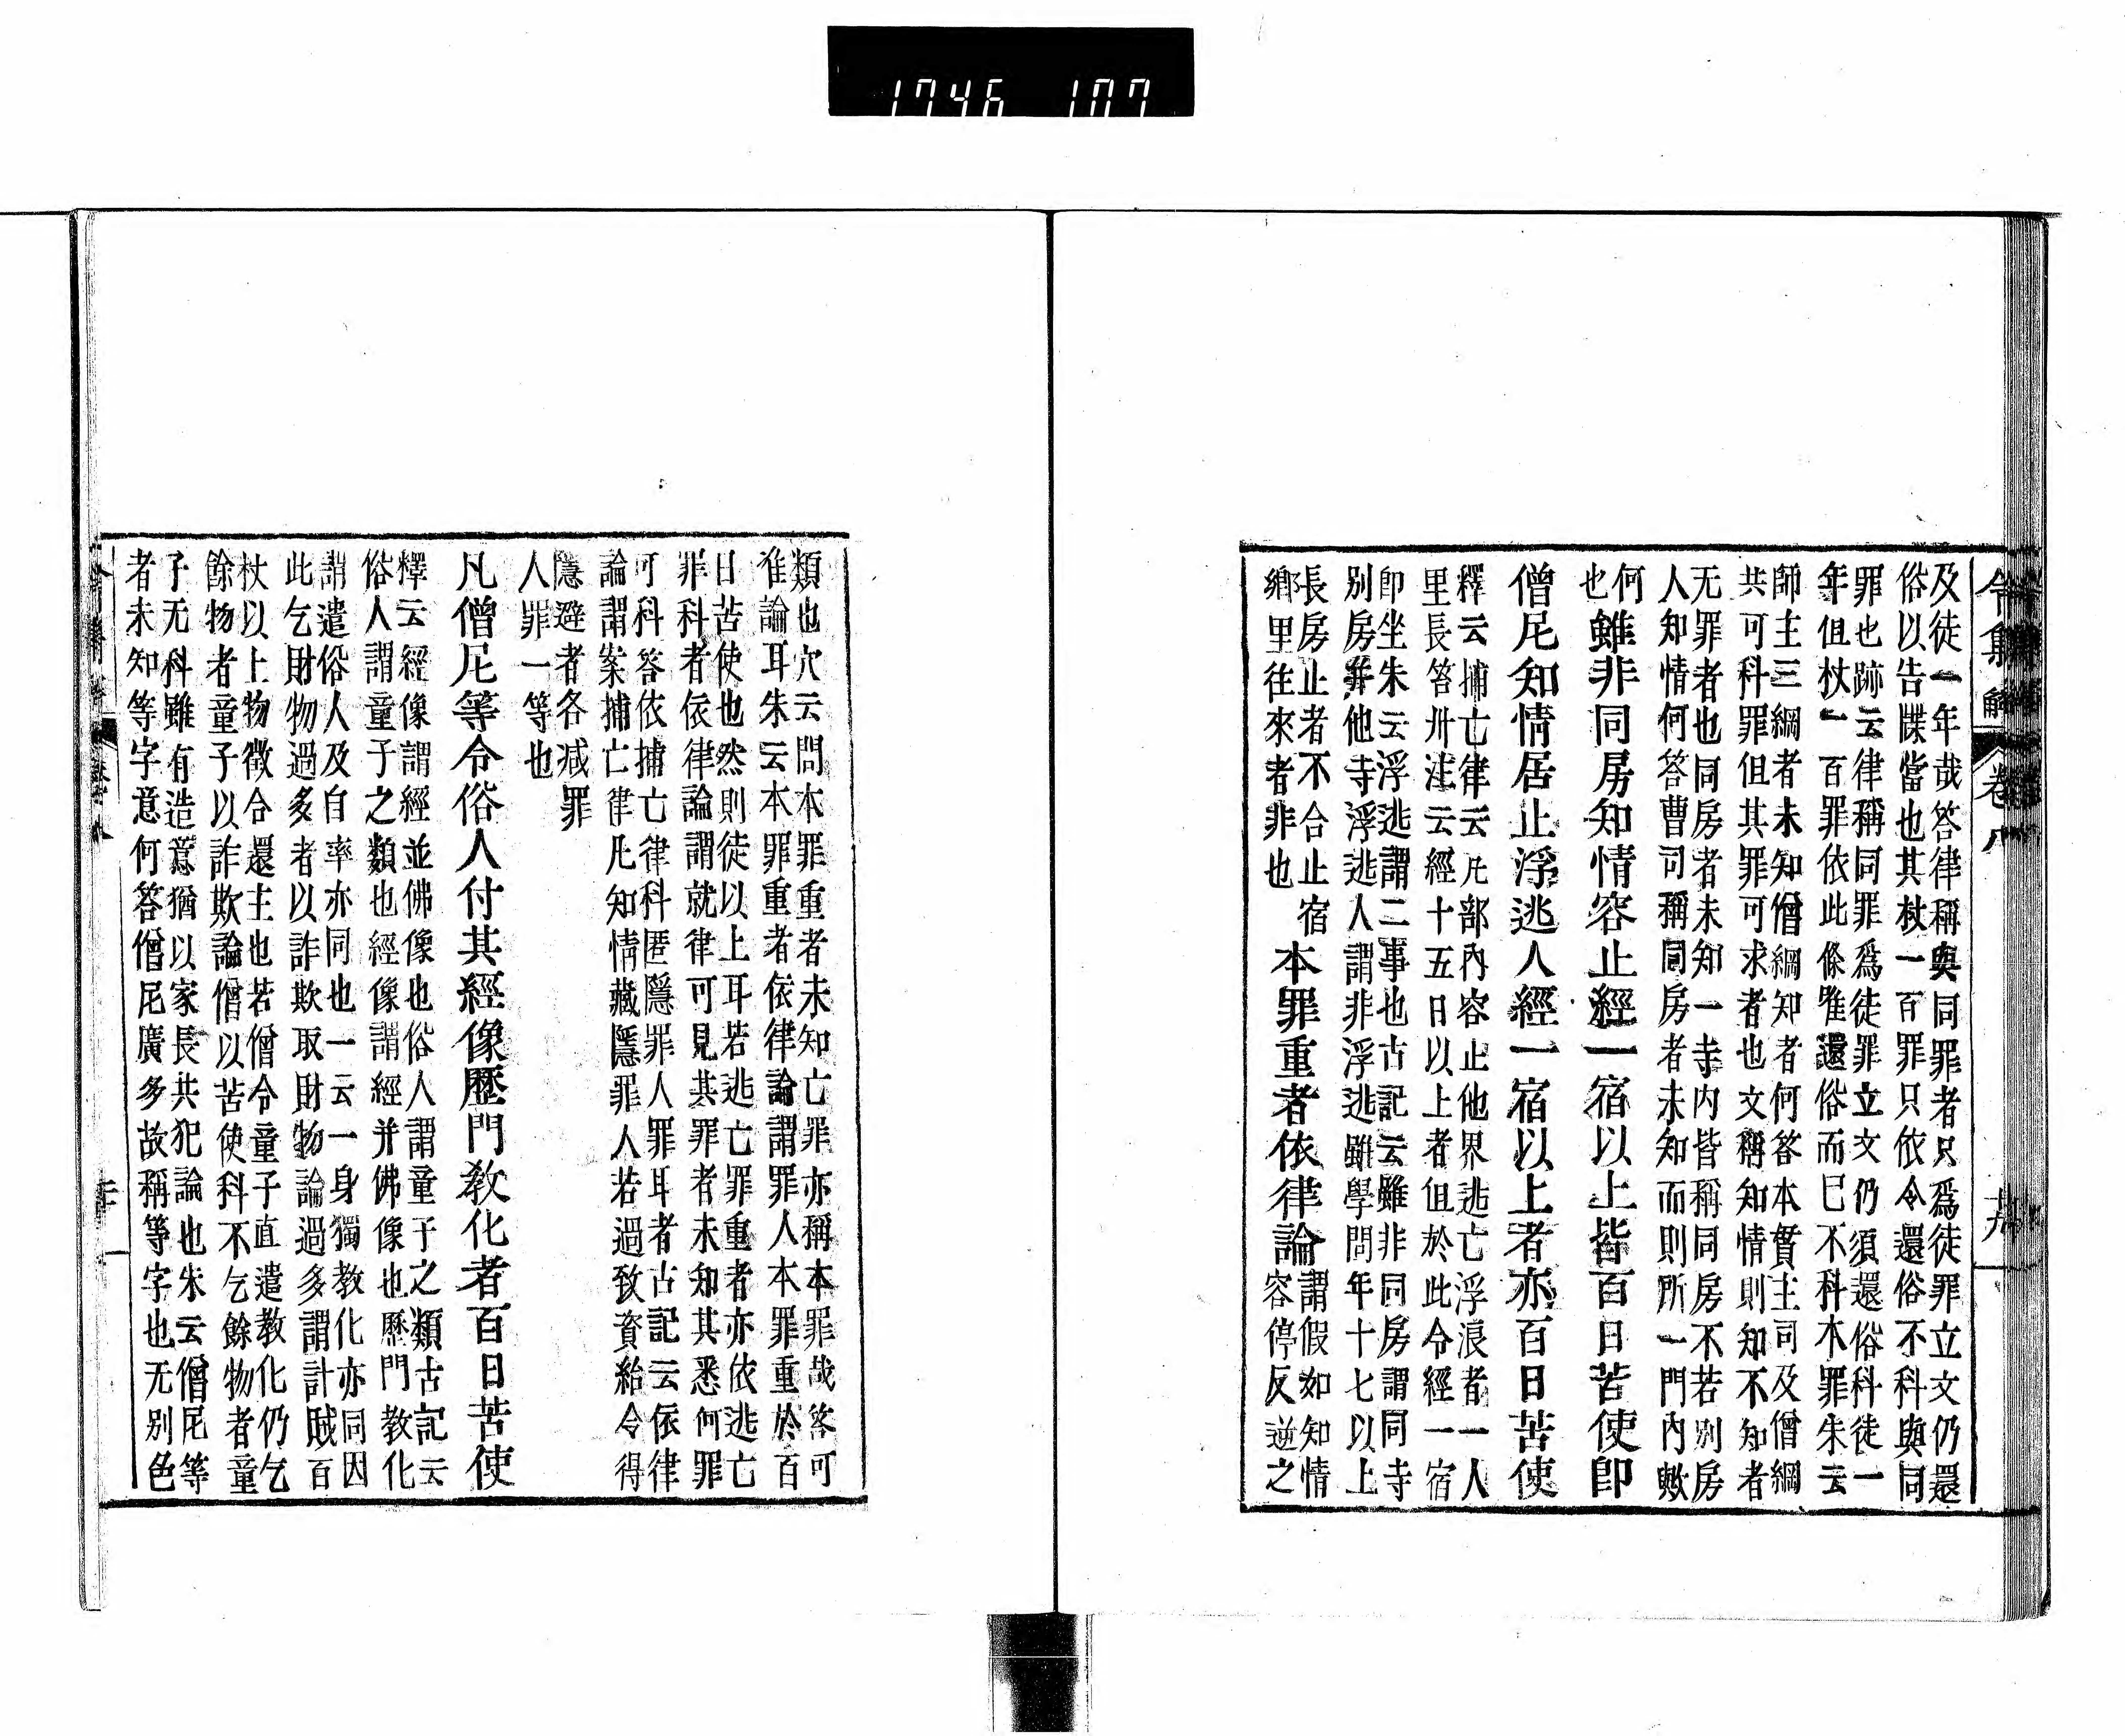 1746 107
令集解 卷八 十九
及徒一年哉答律稱與同罪者只爲徒罪立文仍還
俗以告牒當也其杖一百罪只依令還俗不科與同
罪也跡云律稱同罪爲徒罪立文仍須還俗科徒一
年但杖一百罪依此條唯還俗而已不科本罪朱云
師主三綱者未知僧綱知者何答本貫主司及僧綱
共可科罪但其罪可求者也文稱知情則知不知者
无罪者也同房者未知一寺内皆稱同房不若別房
人知情何答曹司稱同房者未知而則所一門内敷
何
也
雖非同房知情容止經一宿以上皆百日苦使即
僧尼知情居止浮逃人經一宿以上者亦百日苦使
釋云捕亡律云凡部内容止他界逃亡浮浪者一人
里長笞卅注云經十五日以上者但於此令經一宿
即坐朱云浮逃謂二事也古記云雖非同房謂同寺
別房并他寺浮逃人謂非浮逃雖學問年十七以上
長房止者不合止宿
鄉里往來者非也
本罪重者依律論
謂假如知情
容停反逆之
類也穴云問本罪重者未知亡罪亦稱本罪哉答可
准論耳朱云本罪重者依律論謂罪人本罪重於百
日苦使也然則徒以上耳若逃亡罪重者亦依逃亡
罪科者依律論謂就律可見其罪者未知其悉何罪
可科答依捕亡律科匿隱罪人罪耳者古記云依律
論謂案捕亡律凡知情藏隱罪人若過致資給令得
隱避者各减罪
人罪一等也
凡僧尼等令俗人付其經像歷門教化者百日苦使
釋云經像謂經並佛像也俗人謂童子之類古記云
俗人謂童子之類也經像謂經并佛像也歷門教化
謂遣俗人及自率亦同也一云一身獨教化亦同因
此乞財物過多者以詐欺取財物論過多謂計賊百
杖以上物徵令還主也若僧令童子直遣教化仍乞
餘物者童子以詐欺論僧以苦使科不乞餘物者童
子无科雖有造意猶以家長共犯論也朱云僧尼等
者未知等字意何答僧尼廣多故稱等字也无別色